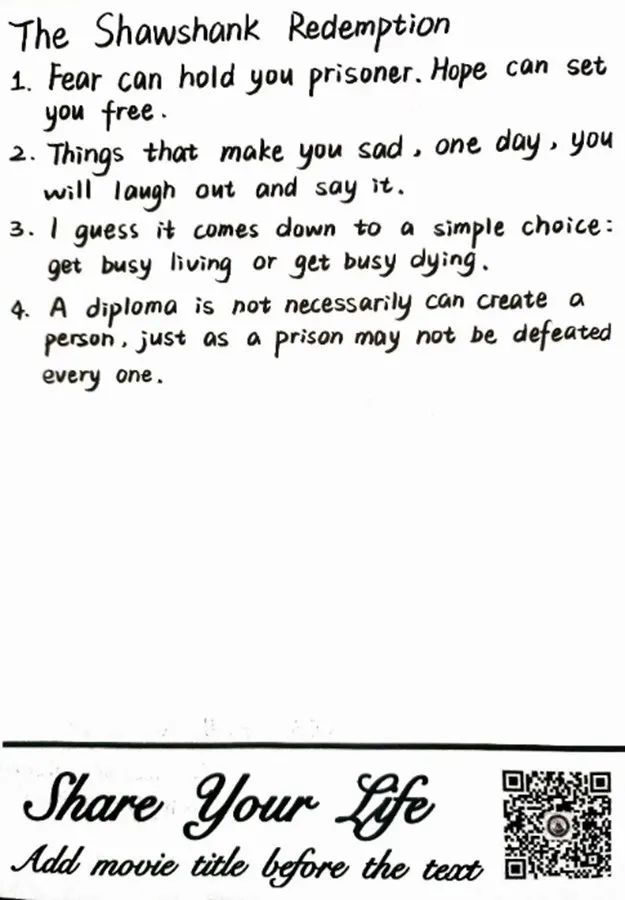 The Shawshank Redemption
1. Fear can hold you prisoner. Hope can set
you free.
2. Things that make you sad, one day, you
will laugh out and say it.
3. I guess it comes down to a simple choice:
get busy living or get busy dying.
4. A diploma is not necessarily can create a
person, just as a prison may not be defeated
every one.
Share Your Life
Add movie title before the text